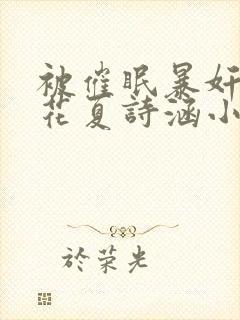 被催眠暴奸
花夏詩涵小
於荣光